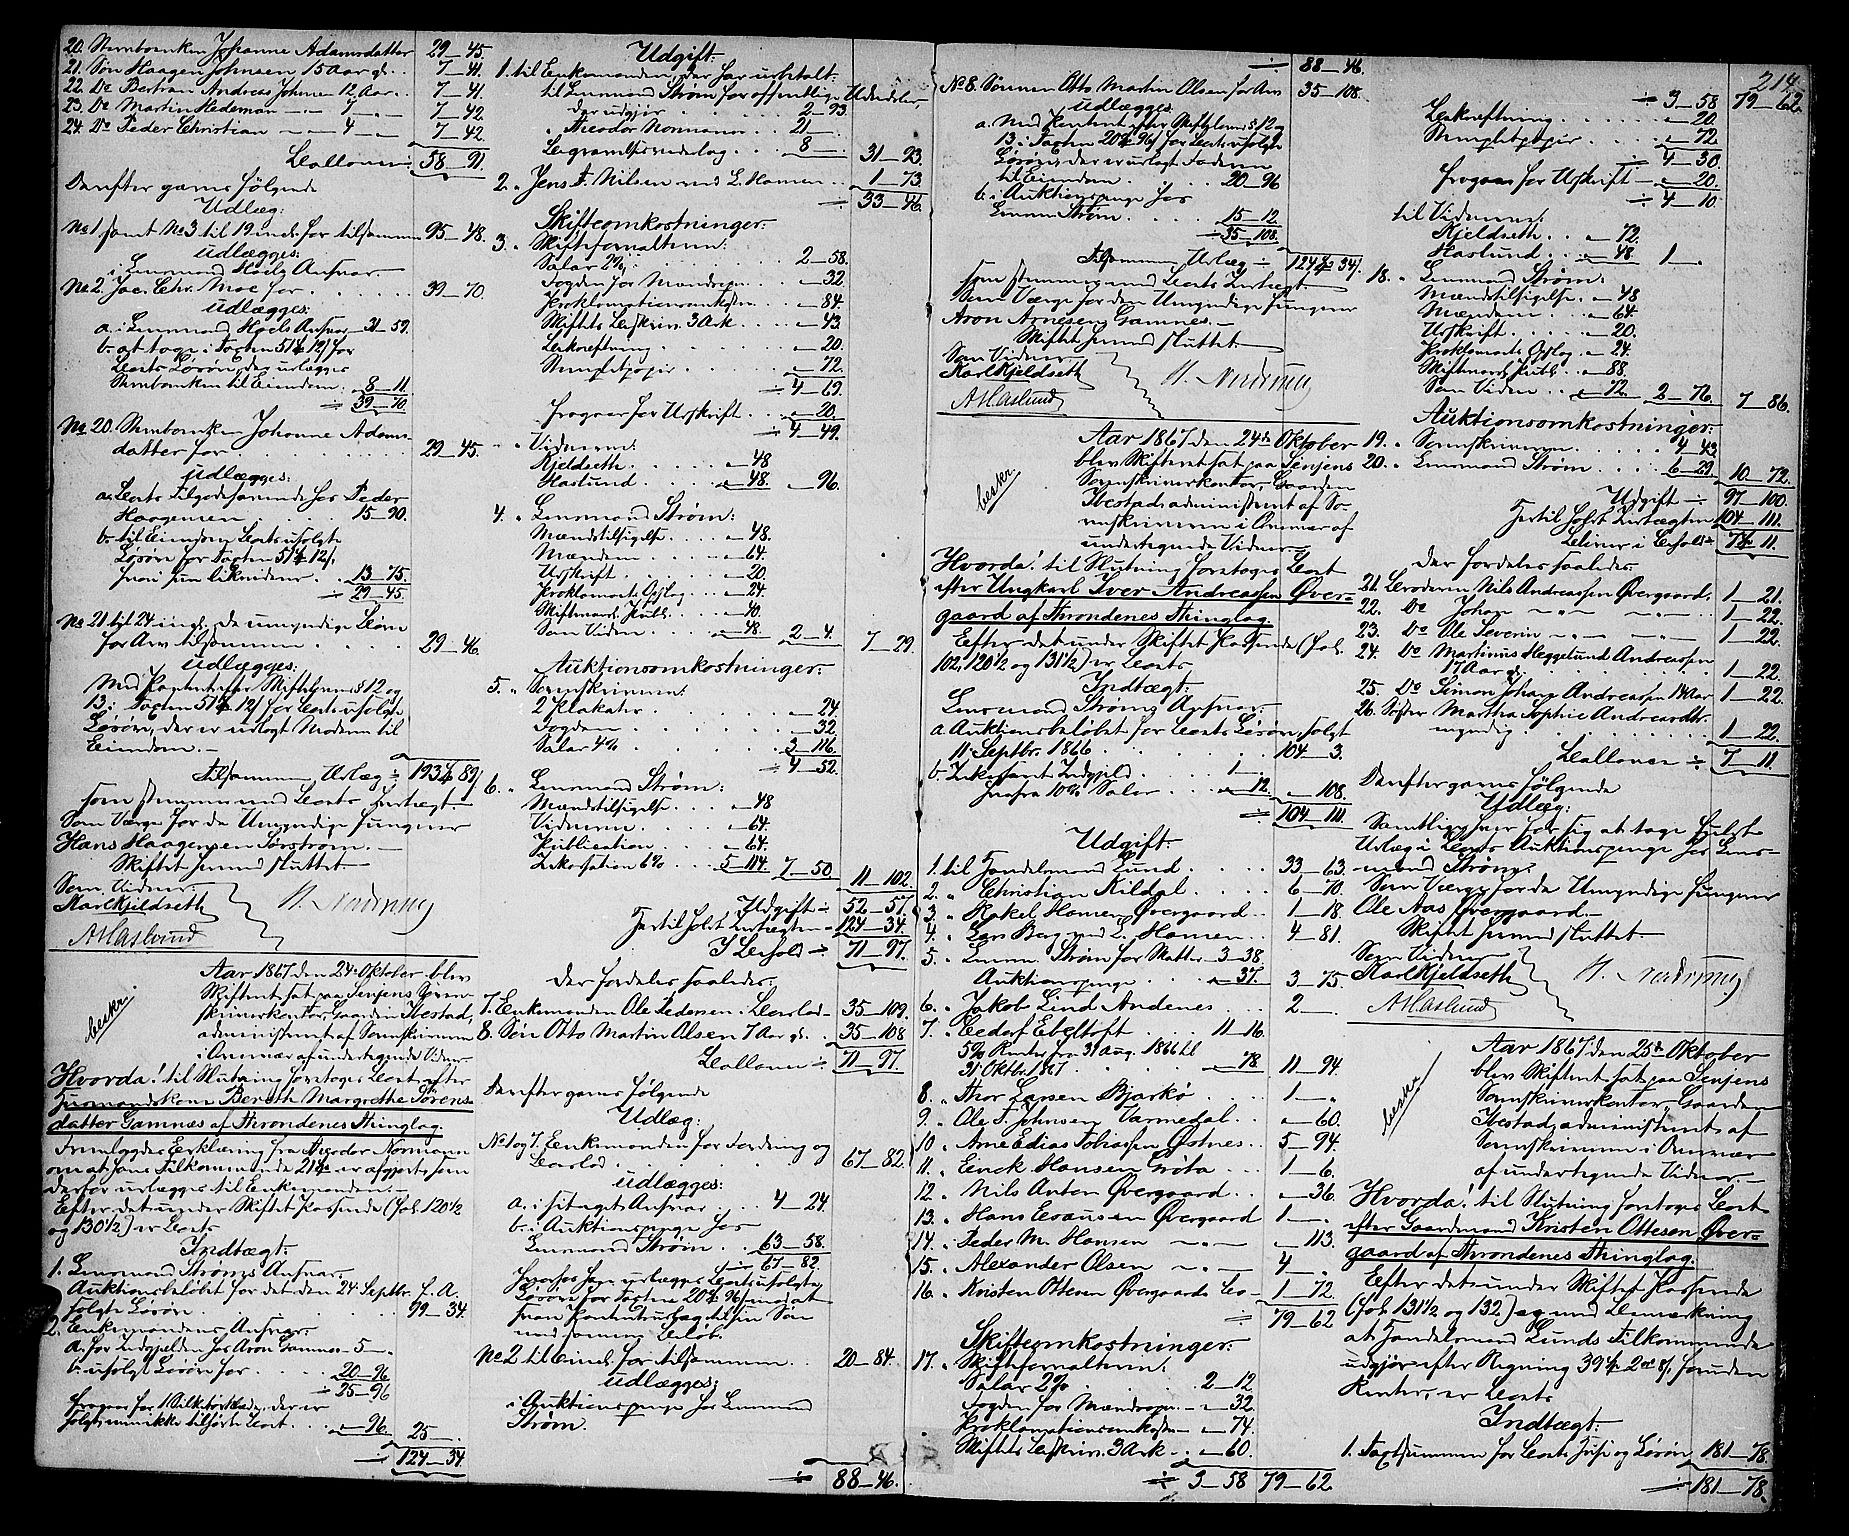 20. Stervboenken Johanne Adamsdatter 29-45.
21. Søn Haagen Johnsen 15 Aar gl. 7-41.
22. Do Bertran Andreas Johnsen 12 Aar 7-41.
23. Do Martin Hedeman 7 7-42.
24. Do Peder Christian 4 7-42
58-91.
Derefter gjøres følgende
Udlæg:
No 1 samt No 3 til 19 incl. for tilsammen 95-48.
udlægges:
i Lensmand Høeghs Ansvar
No 2. Jac. Chr. Moe for 39-70.
udlægges:
a. i Lensmand Høeghs Ansvar 31-59.
b. at tage i Taxten 51 12 for
Boets Løsøre, der udlægges
Stervboenken til Eiendom. 8-11.
39-70.
No 20. Stervboenken Johanne Adams-
datter for 29-45.
udlægges:
a. Boets Tilgodehavende hos Peder
Haagensen 15-90.
b. til Eiendom Boets usolgte
Løsøre for Taxten 51 12
hvori hun likviderer 13-75.
29-45.
No 21 til 24 incl. De umyndige Børn
for Arv tilsammen 29-46
udlægges:
Med Panteret efter Skifteloven § 12 og
13 i Taxten 51 12 for Boets usolgte
Løsøre, der er udlagt Moderen til
Eiendom.
Tilsammen Udlæg 193 89
som stemmer med Boets Indtægt.
Som Værge for de Umyndige fungerer
Hans Haagensen Sørstrøm.
Skiftet hermed sluttet.
Som Vidner
Karl Kjeldseth
A Haslund
Aar 1867 den 24de Oktober blev
Skifteret sat paa Senjens Soren-
skriverkontor, Gaarden Ibestad,
administreret af Sorenskriveren
i Overvær af undertegnede Vidner
beskr
Hvorda! til Slutning foretoges Boet efter
Husmandskone Bereth Margrethe Sørens-
datter Gamnæs af Throndenes Thinglag.
Fremlagdes Erklæring fra Theodor Normann
om at hans Tilkommende 21 er afgjort som
derfor udlægges til Enkemanden.
Efter det under Skiftet Passerede (Fol. 120 1/2
og 130 1/2) er Boets
Indtægt:
1. Lensmand Strøms Ansvar
Auktionsbeløbet for det den 24 Septbr. f. A.
solgte Løsøre 99-34.
2. Enkemandens Ansvar:
a. for Indgjelden hos Aron Gamnes 5-
b. usolgt Løsøre for 20-96
25-96
fragaar for 1 Silketørklæde, der er
solgt men ikke tilhørte Boet. -96. 25-
124-34

Udgift:
1. til Enkemanden, der har udbetalt:
til Lensmand Strøm for offentlige Udredsler,
der udgjør 2-93.
Theodor Normann 21-
Begravelsesudlæg 8- 31-93.
2. Jens F. Nilsen ved L. Hansen 1-73.
33-96.
Skifteomkostninger:
3. Skifteforvalteren:
Salar 2% 2-58.
Fogden for Mændropn. -32.
Proklamationsomkostn. -84.
Skiftets Beskriv. 3 Ark -43.
Bekræftning -20.
Stempletpapir -72.
4-69.
fragaar for Udskrift -20.
4-49.
Vidnerne:
Kjeldseth -48
Haslund -48 -96.
4. Lensmand Strøm:
Mændstilsigelse -48.
Mændene -64.
Udskrift -20.
Proklamats Opslag -24.
Skiftesaml. Publ. -40.
Som Vidne -48 2-4. 7-29.
Auktionsomkostninger:
5. Sorenskriveren:
2 Plakater -24
Fogden -32.
Salar 4% 3-116.
4-52.
6. Lensmand Strøm:
Mændstilsigelse -48
Vidnerne -64.
Publication -64.
Inkassation 6% 5-114. 7-50. 11-102.
Udgift 52-57.
Hertil holdt Indtægten 124-34.
I Behold 71-97.
der fordeles saaledes:
7. Enkemanden Ole Pedersen i Boeslod 35-109.
8. Søn Otto Martin Olsen 7 Aar gl. 35-108
71-97.
Derefter gjøres følgende
Udlæg:
No 1 og 7. Enkemanden for Fordring og
Boeslod 67-82.
udlægges:
a. i sit eget Ansvar 4-24.
b. i Auktionspenge hos
Lensmand Strøm 63-58.
67-82.
Hvorhos ham udlægges Boets usolgte
Løsøre for Taxten 20 96 mod at
svare Panteretudlæg til sin Søn
med samme Beløb.
No 2 til for tilsammen 20-84.
udlægges:
i Auktionspenge hos Lensmand
Strøm.
88-46.

88-46.
No 8. Sønnen Otto Martin Olsen for Arv 35-108.
udlægges:
a. Med Panteret efter Skifteloven § 12 og
13 i Taxten 20 96 for Boets usolgte
Løsøre, der er udlagt Faderen
til Eiendom. 20-96
b. i Auktionspenge hos
Lensm. Strøm. 15-12.
35-108.
Tilsammen Udlæg 124 34.
som stemmer med Boets Indtægt.
Som Værge for den Umyndige fungerer
Aron Arnesen Gamnes.
Skiftet hermed sluttet.
Som Vidner
Karl Kjeldseth
A Haslund
Aar 1867 den 24de Oktober
blev Skifteret sat paa Senjens
Sorenskriverkontor, Gaarden
Ibestad, administreret af So-
renskriveren i Overvær af
undertegnede Vidner
beskr
Hvorda! til Slutning foretoges Boet
efter Ungkarl Iver Andreassen Øver-
gaard af Throndenes Thinglag.
Efter det under Skiftet Passerede (Fol.
102, 120 1/2 og 131 1/2) er Boets
Indtægt:
Lensmand Strøms Ansvar:
a. Auktionsbeløbet for Boets Løsøre, solgt
11 Septbr. 1866 104-3.
b. Inkasseret Indgjeld 1-
herfra 10% Salar -12. -108.
104-111.
Udgift:
1. til Handelsmand Lund 33-63.
2. Christian Kildal 6-70.
3. Rakel Hansen Øvergaard 1-18.
4. Lars Berg ved L. Hansen 4-81.
5. Lensm. Strøm for Skatter 3-38.
Auktionspenge -37. 3-75.
6. Jakob Lind Andenes 2-
7. Eedorf Ebeltoft 11-16.
5% Renter fra 31 Aug. 1866 til
31 Oktbr. 1867 -78. 11-94.
8. Thor Larsen Bjarkø 1-
9. Ole T. Johnsen Varmedal -60.
10. Arne Edias Tobiassen Østnes 5-94.
11. Eirick Hansen Grøta 1-6.
12. Nils Anton Øvergaard -36.
13. Hans Erausen Øvergaard 1-
14. Peder M. Hansen -113.
15. Alexander Olsen 4-
16. Kristen Ottesen Øvergaards Bo 1-72.
79-62
Skifteomkostninger:
17. Skifteforvalteren:
Salar 2% 2-12
Fogden for Mændropn. -32
Proklamationsomkostn. -74.
Skiftets Beskriv. 3 Ark -60.
3-58 79-62.

214
3-58 79-62.
Bekræftning -20.
Stempletpapir -72
4-30.
fragaar for Udskrift -20.
4-10.
til Vidnerne:
Kjeldseth -72.
Haslund -48 1-
18. Lensmand Strøm:
Mændstilsigelse -48
Mændene -64.
Udskrift -20.
Proklamats Opslag -24.
Skiftesaml. Publ. -88.
Som Vidne -72. 2-76. 7-86.
Auktionsomkostninger:
19. Sorenskriveren 4-43.
20. Lensmand Strøm 6-29. 10-72.
Udgift 97-100.
Hertil holdt Indtægten 104-111.
Bliver i Behold 7-11.
der fordeles saaledes:
21. Broderen Nils Andreassen Øvergaard 1-21.
22. Do Johan 1-22.
23. Do Ole Severin 1-22.
24. Do Martinus Heggelund Andreassen
17 Aar gl. 1-22.
25. Do Simon Johan Andreassen 14 Aar 1-22.
26. Søster Martha Sophie Andreasdtr.
myndig 1-22.
7-11
Derefter gjøres følgende
Udlæg:
Samtlige har hos sig at tage fuldt
Udlæg i Boets Auktionspenge hos Lens-
mand Strøm.
Som Værge for de Umyndige fungerer
Ole Aas Øvergaard.
Skiftet hermed sluttet.
Som Vidner
Karl Kjeldseth
A Haslund
Aar 1867 den 25de Oktober
blev Skifteret sat paa Senjens
Sorenskriverkontor, Gaarden
Ibestad, administreret af
Sorenskriveren i Overvær
af undertegnede Vidner.
beskr
Hvorda! til Slutning foretoges Boet
efter Gaardmand Kristen Ottesen Øver-
gaard af Throndenes Thinglag.
Efter det under Skiftet Passerede
(Fol. 131 1/2 og 132) og med Bemærkning
at Handelsmand Lunds Tilkommende
udgjør efter Regning 39 2 foruden
Renter, er Boets
Indtægt:
1. Taxtsummen for Boets Huse og Løsøre 181-78.
181-78.